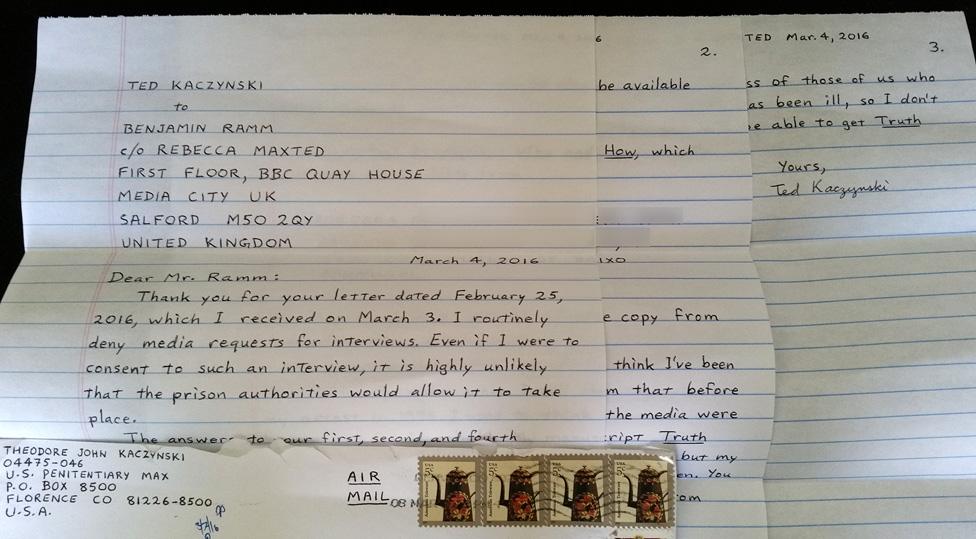 TED KACZYNSKI
to
BENJAMIN RAMM
c/o REBECCA MAXTED
FIRST FLOOR, BBC QUAY HOUSE
MEDIA CITY UK
SALFORD M50 2QY
UNITED KINGDOM
March 4, 2016
Dear Mr. Ramm:
Thank you for your letter dated February 25,
2016, which I received on March 3. I routinely
deny media requests for interviews. Even if I were to
consent to such an interview, it is highly unlikely
that the prison authorities would allow it to take
place.
The answers to your first, second, and fourth
6
2.
be available
How, which
e copy from
think I've been
m that before
the media were
cript Truth
but my
en. You
TED Mar. 4, 2016
3.
ss of those of us who
as been ill, so I don't
be able to get Truth
Yours,
Ted Kaczynski
THEODORE JOHN KACZYNSKI
04475-046
U.S. PENITENTIARY MAX
P.O. BOX 8500
FLORENCE CO 81226-8500
U.S.A.
AIR
MAIL
USA 5c
USA 5c
USA 5c
USA 5c